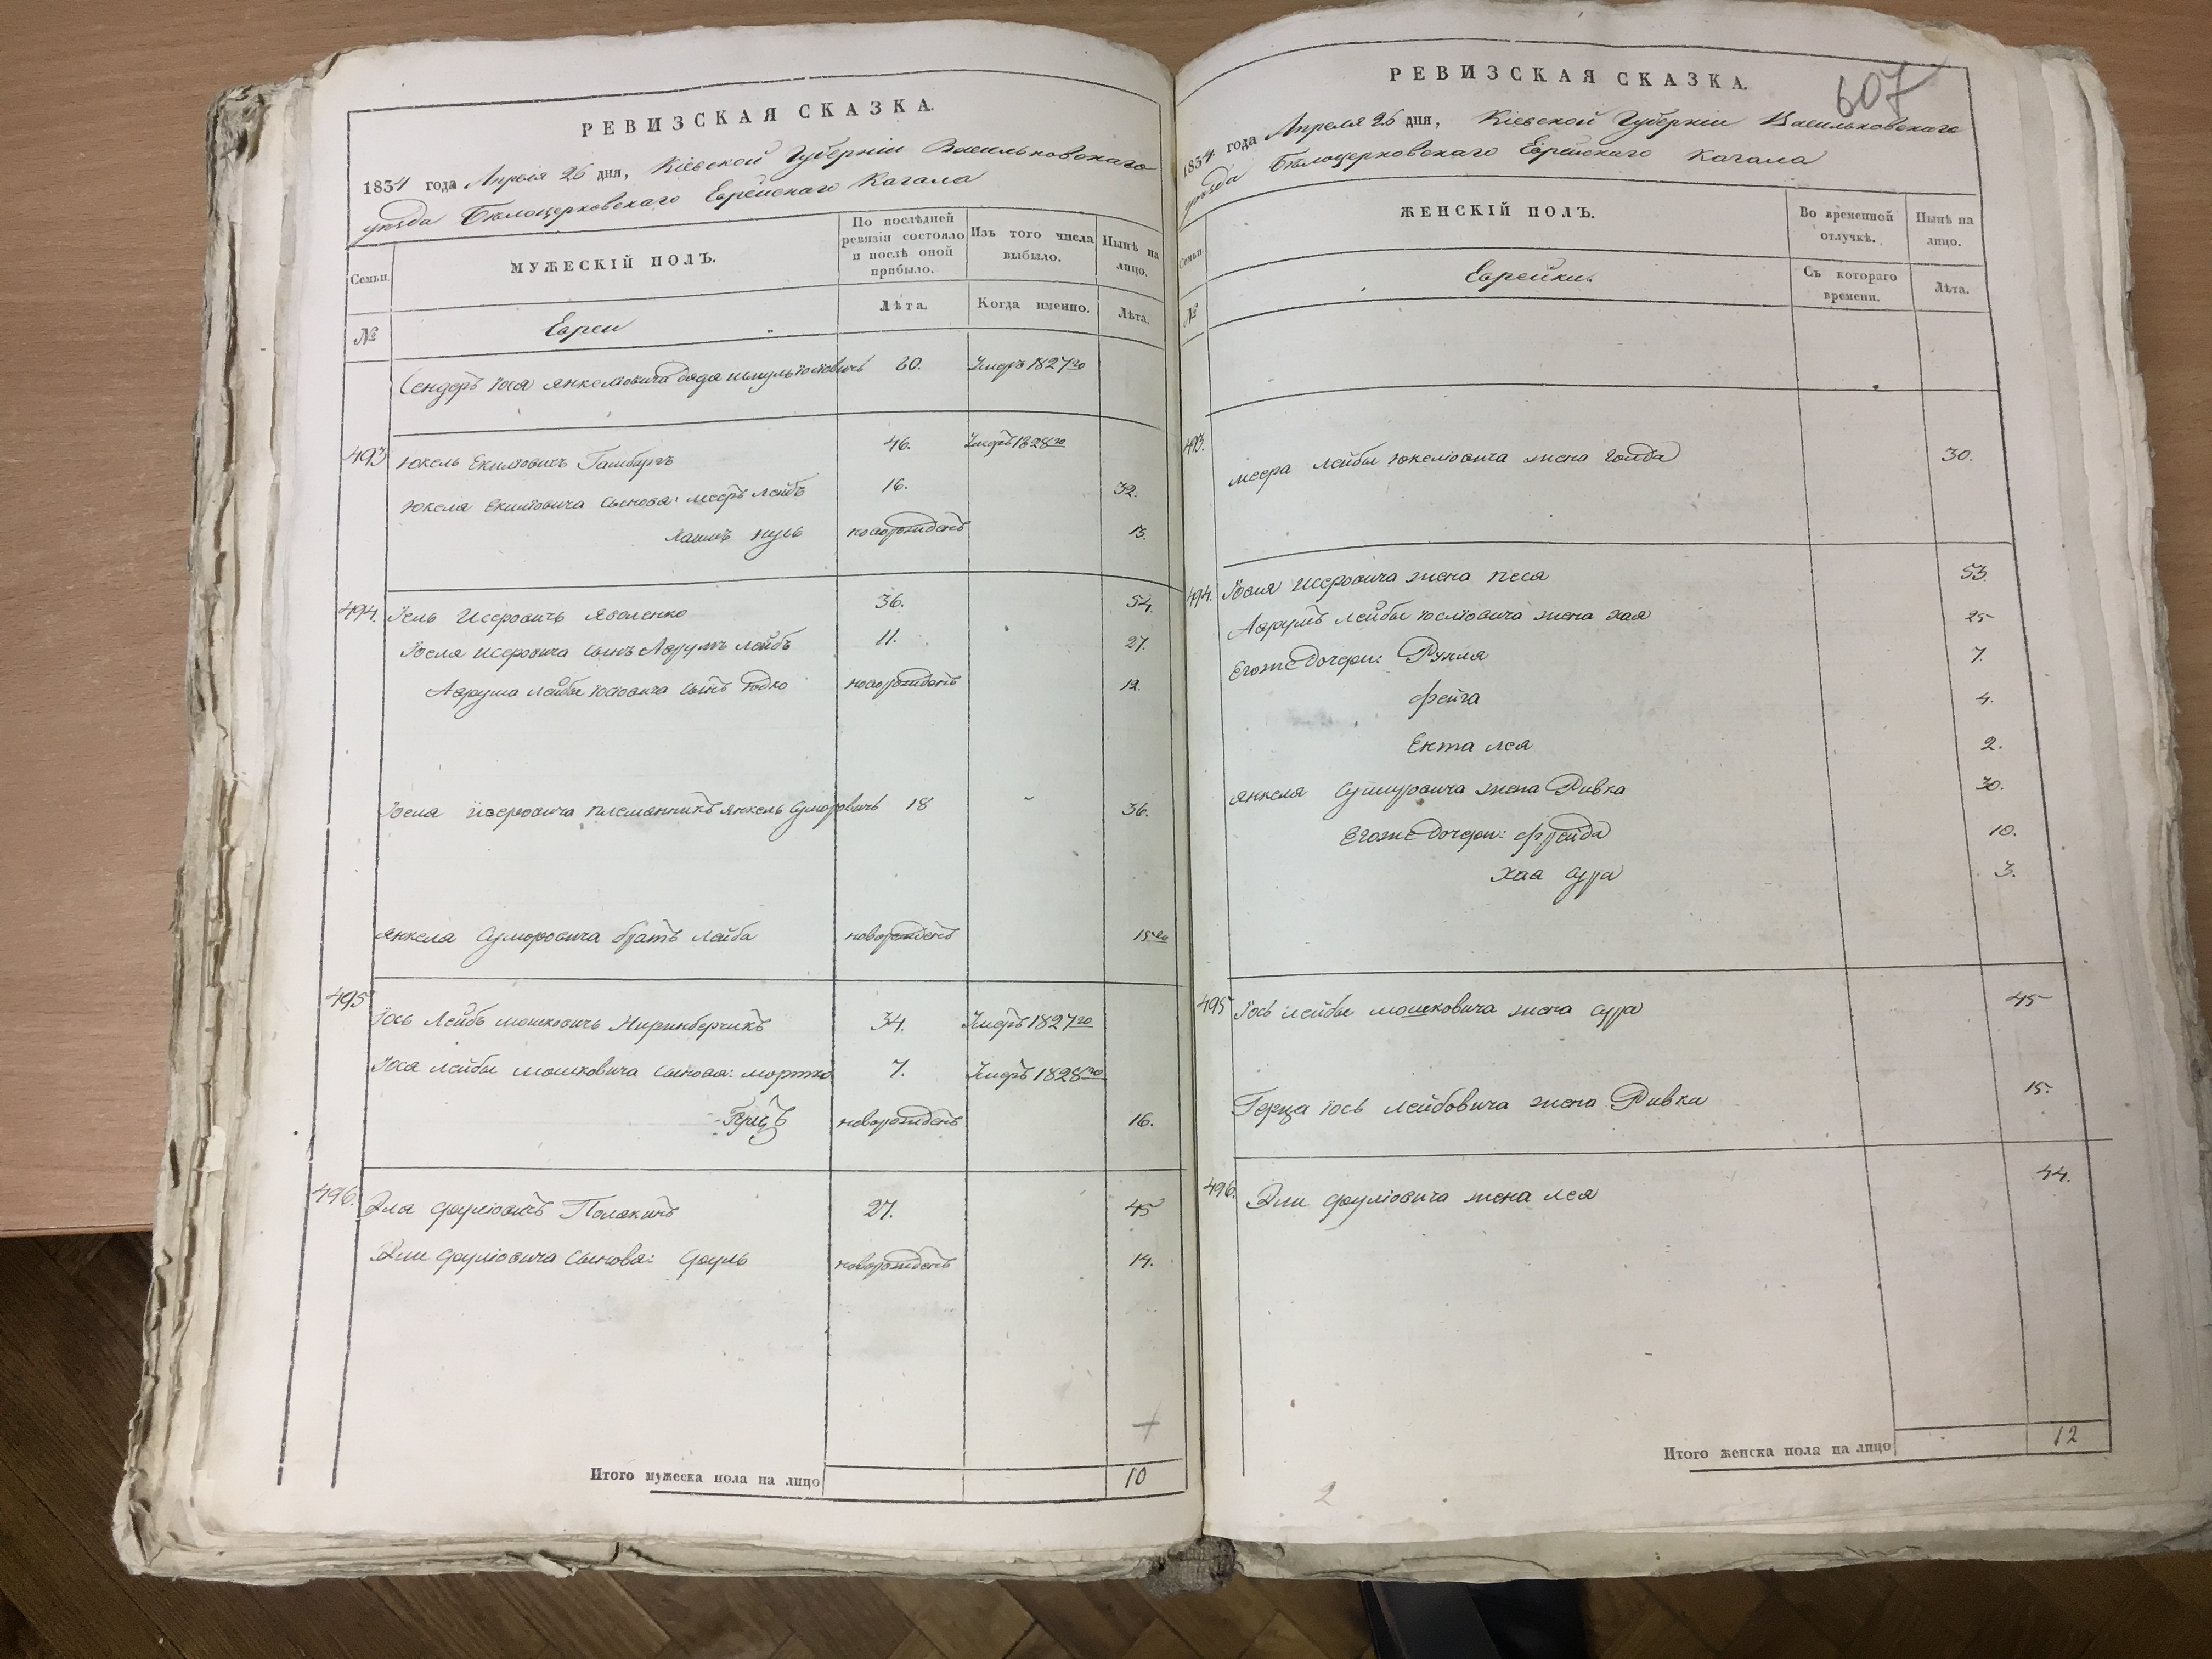 РЕВИЗСКАЯ СКАЗКА.
1834 года Апреля 26 дня, Кіевской Губерніи Васильковскаго
уѣзда Бѣлоцерковскаго Еврейскаго Кагала
Семьи.
МУЖЕСКІЙ ПОЛЪ.
По послѣдней ревизіи состояло и послѣ оной прибыло.
Изъ того числа выбыло.
Нынѣ на лицо.
№
Евреи
Лѣта.
Когда именно.
Лѣта.
Янкеліовича дядя 60. Умеръ 1827го
493 Юкель Екиміовичъ Гамбургъ 46. Умеръ 1828го
Юкеля Екиміовича сыновя: Мееръ Лейбъ 16. 32.
новорожденъ 13.
494. Іосль Исеровичъ Яволенко 36. 54.
Іосля Исеровича сынъ Аврумъ Лейбъ 11. 27.
Аврума Лейбы Іосліовича сынъ новорожденъ 12.
Іосля Исеровича племянникъ Янкель 18 36.
Янкеля братъ Лейба новорожденъ 15го
495 Іось Лейбъ Мошковичъ Ниринберчикъ 34. Умеръ 1827го
Іося Лейбы Мошковича сыновя: Мортко 7. Умеръ 1828го
Герцъ новорожденъ 16.
496. Эля Сруліовичъ Полякинъ 27. 45
Эли Сруліовича сыновя: Сруль новорожденъ 14.
Итого мужеска пола на лицо 10
607
РЕВИЗСКАЯ СКАЗКА.
1834 года Апреля 26 дня, Кіевской Губерніи Васильковскаго
уѣзда Бѣлоцерковскаго Еврейскаго Кагала
Семьи.
ЖЕНСКІЙ ПОЛЪ.
Во временной отлучкѣ.
Нынѣ на лицо.
№
Еврейки.
Съ котораго времени.
Лѣта.
493. Меера Лейбы Юкеліовича жена Голда 30.
494. Іосля Исеровича жена Песя 53.
Аврумъ Лейбы Іосліовича жена Хая 25
Егоже дочери: Рухля 7.
Фейга 4.
Ента Лея 2.
Янкеля жена Ривка 30.
Егоже дочери: Фрейда 10.
Хая Сура 3.
495 Іось Лейбы Мошковича жена Сура 45
Герца Іось Лейбовича жена Ривка 15.
496. Эли Сруліовича жена Лея 44.
Итого женска пола на лицо 12
2